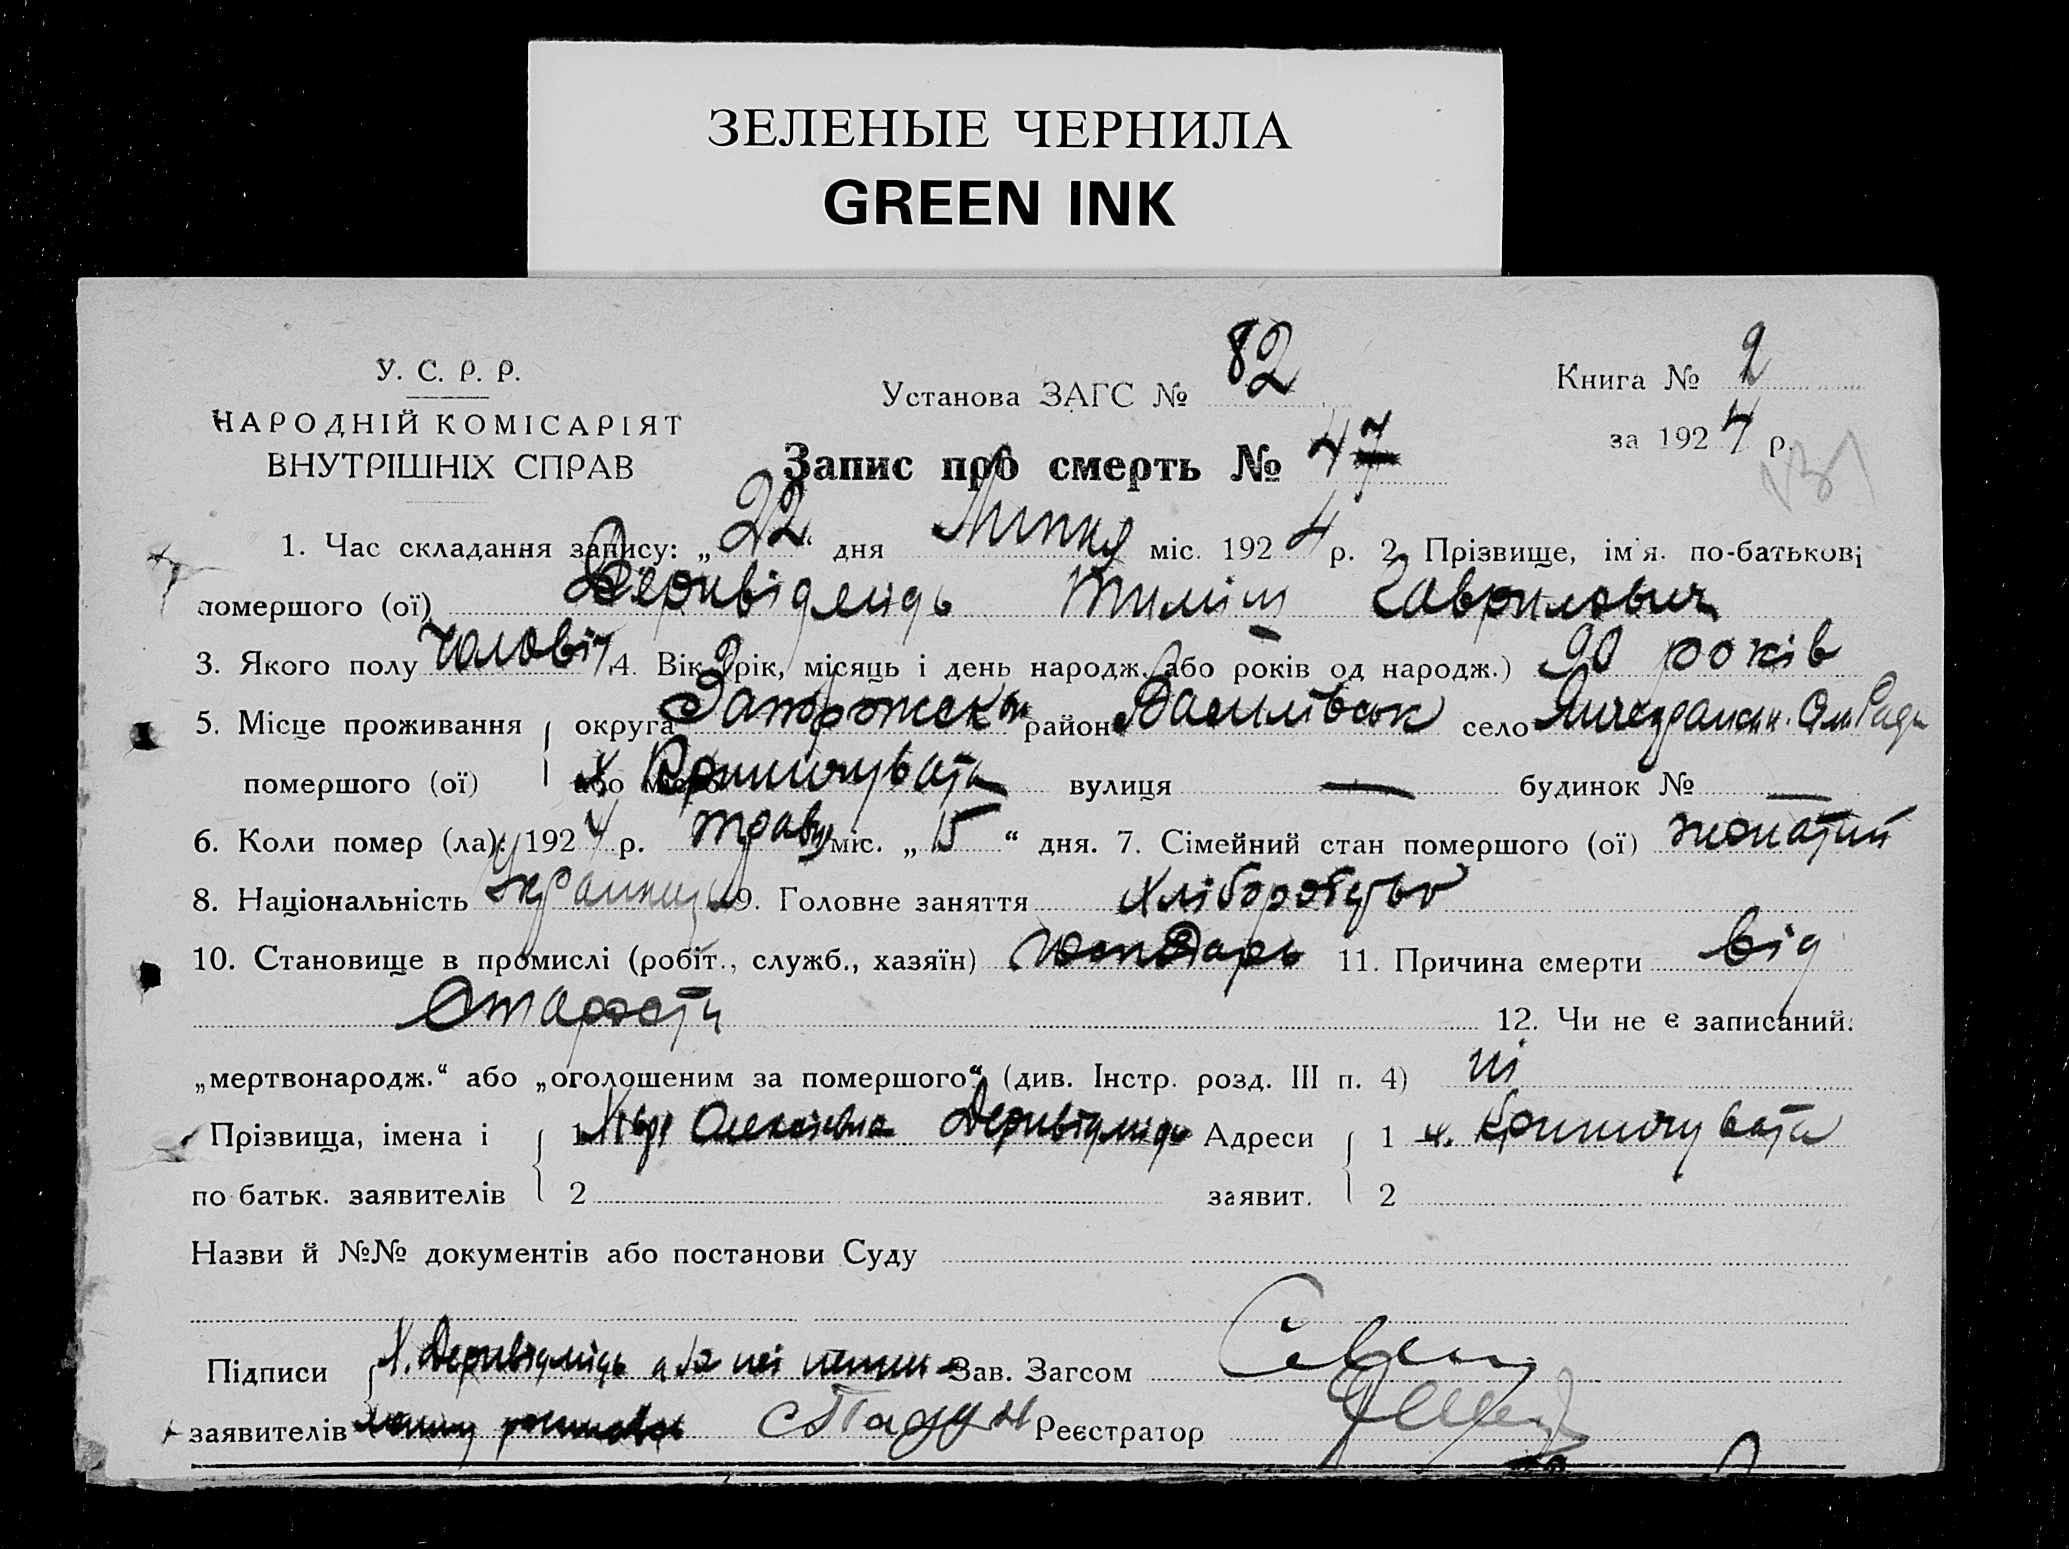 ЗЕЛЕНЫЕ ЧЕРНИЛА
GREEN INK
У. С. Р. Р.
НАРОДНІЙ КОМІСАРІЯТ
ВНУТРІШНІХ СПРАВ
Установа ЗАГС № 82
Книга № 2
за 1924 р.
Запис про смерть № 47
1. Час складання запису: „22“ дня Липня міс. 1924 р. 2. Прізвище, ім'я. по-батькові
помершого (ої) Деривідмідь Тиміш Гаврилович
3. Якого полу чоловіч 4. Вік (рік, місяць і день народж. або років од народж.) 90 років
5. Місце проживання округа Запорожськ район Василівськ село
помершого (ої) або місто х Криничувата вулиця — будинок № —
6. Коли помер (ла): 1924 р. травня міс. „15“ дня. 7. Сімейний стан помершого (ої) жонатий
8. Національність Українець 9. Головне заняття хлібороство
10. Становище в промислі (робіт., служб., хазяїн) господарь 11. Причина смерти від
старости 12. Чи не є записаний:
„мертвонародж.“ або „оголошеним за помершого“ (див. Інстр. розд. III п. 4) ні
Прізвища, імена і 1 Олексіевна Деривідмидь Адреси 1 х. Криничувата
по батьк. заявителів 2 заявит. 2
Назви й №№ документів або постанови Суду
Підписи Х. Деривідмідь а за неі Зав. Загсом
заявителів Реєстратор